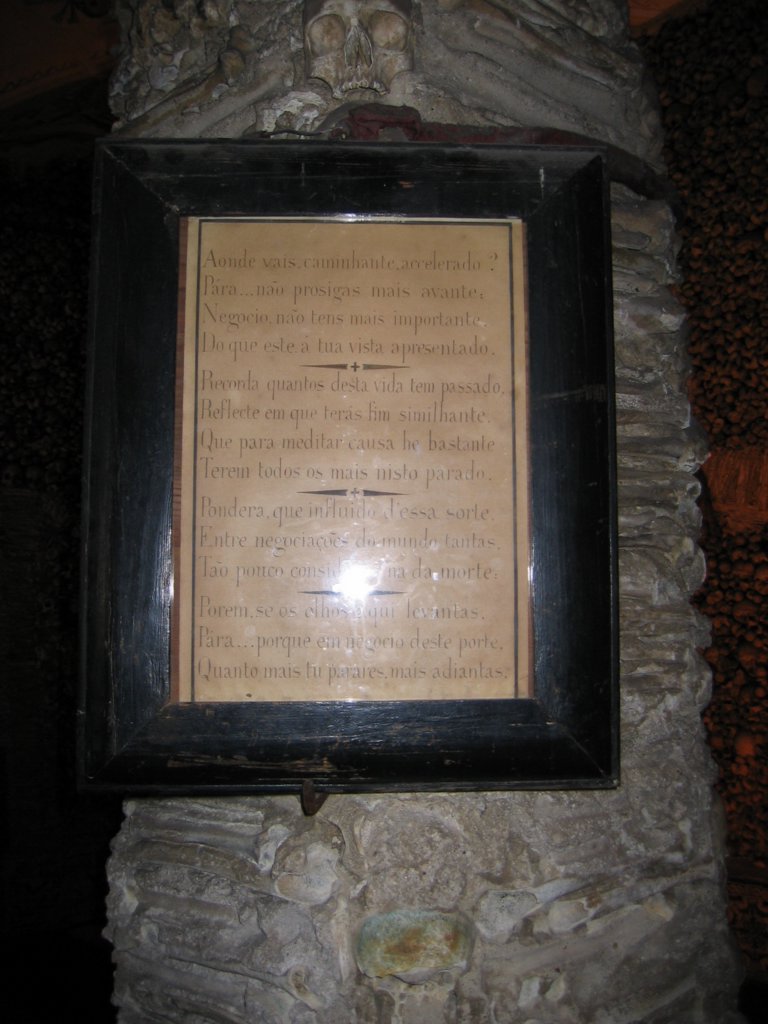 Aonde vais, caminhante, accelerado?
Pára...não prosigas mais avante;
Negocio, não tens mais importante,
Do que este, á tua vista apresentado.
Recorda quantos desta vida tem passado,
Reflecte em que terás fim similhante,
Que para meditar causa he bastante
Terem todos os mais nisto parado.
Pondera, que influido d'essa sorte,
Entre negociações do mundo tantas,
Tão pouco na da morte;
Porem, se os olhos aqui levantas,
Pára...porque em negocio deste porte,
Quanto mais tu parares, mais adiantas.